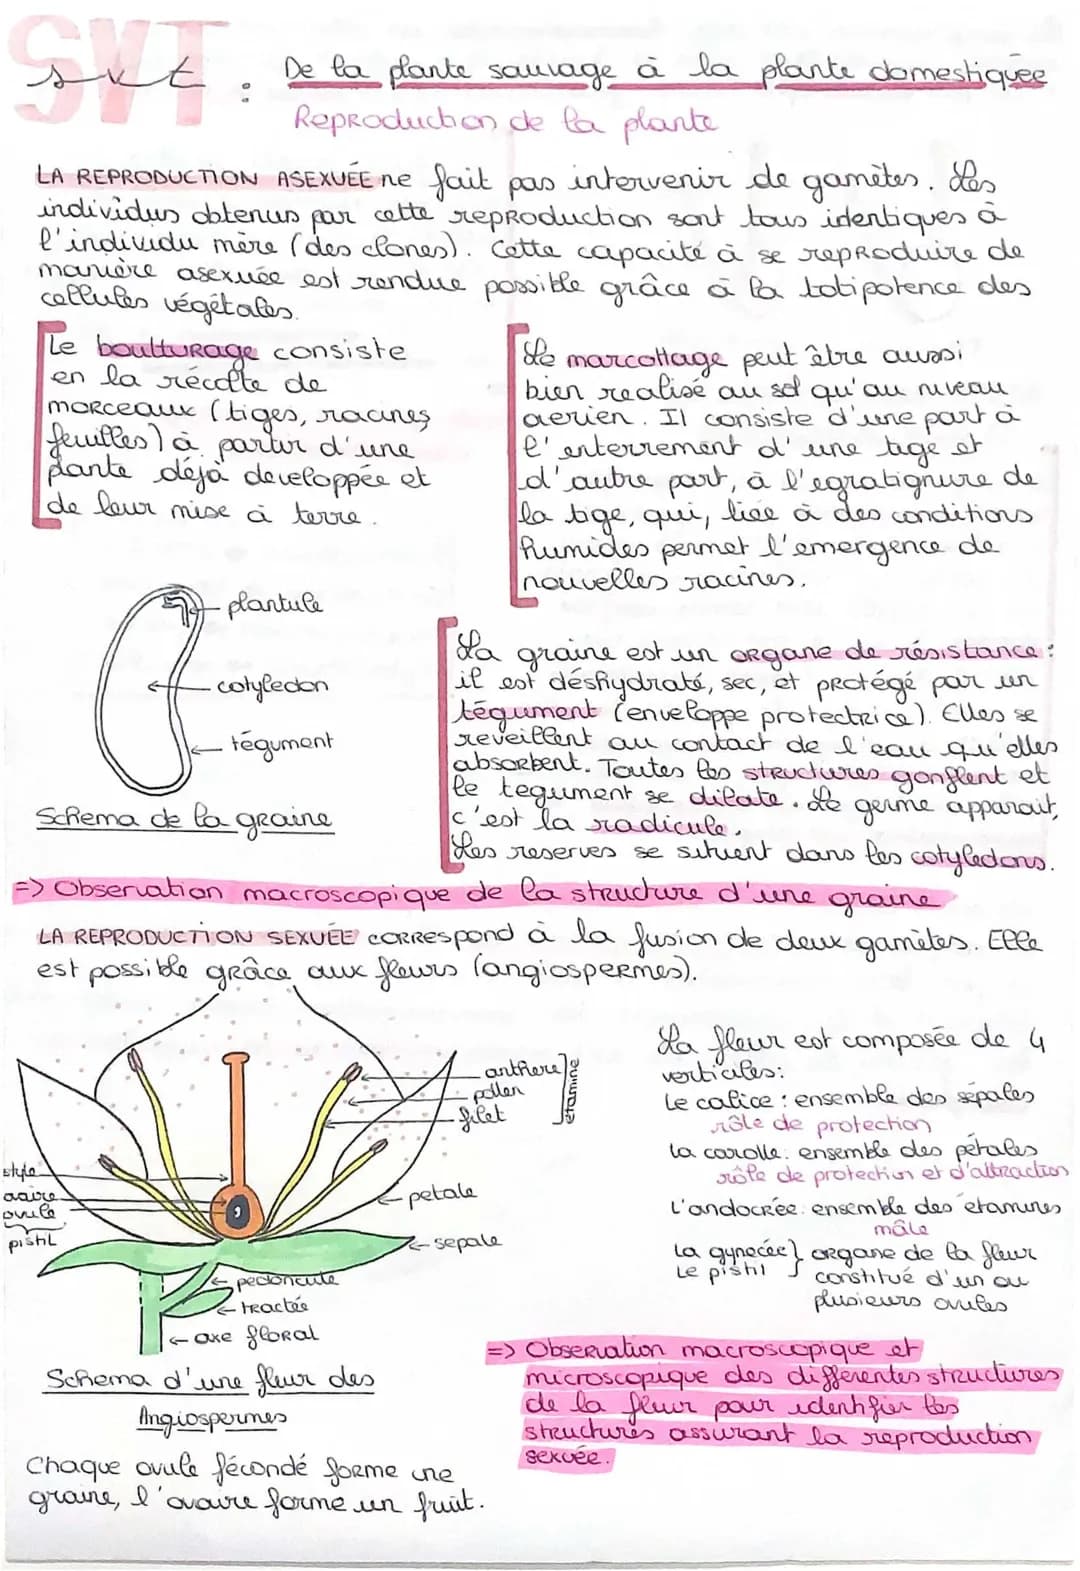 SVT
svt : De la plante sauvage à la plante domestiquée
Reproduction de la plante
LA REPRODUCTION ASEXUÉE ne fait pas intervenir de gamètes. Les
individus obtenus par cette reproduction sont tous identiques à
l'individu mère (des clones). Cette capacité à se reproduire de
manière asexuée est rendue possible grâce à la totipotence des
cellules végétales.
Le boulturage consiste
en la récolte de
morceaux (tiges, racines
feuilles) à partir d'une
plante déjà developpée et
de leur mise à terre.
Le marcottage peut être aussi
bien realisé au sol qu'au niveau
aerien. Il consiste d'une part à
l'enterrement d'une tige et
d'autre part, à l'egratignure de
la tige, qui, liée à des conditions
humides permet l'emergence de
nouvelles racines.
plantule
cotyledon
tégument
Schema de la graine
La graine est un organe de résistance :
il est déshydraté, sec, et protégé par un
tégument (enveloppe protectrice). Elles se
reveillent au contact de l'eau qu'elles
absorbent. Toutes les structures gonflent et
le tegument se dilate. Le germe apparait,
c'est la radicule.
Les reserves se situent dans les cotyledons.
=> Observation macroscopique de la structure d'une graine
LA REPRODUCTION SEXUÉE correspond à la fusion de deux gamètes. Elle
est possible grâce aux fleurs (angiospermes).
anthere
pollen
filet
étamine
style
ovaire
ovule
pistil
petale
sepale
pedoncule
tractée
axe floral
Schema d'une fleur des
Angiospermes
Chaque ovule fécondé forme une
graine, l'ovaire forme un fruit.
La fleur est composée de 4
verticales:
Le calice : ensemble des sépales
rôle de protection
la corolle : ensemble des pétales
rôle de protection et d'attraction
L'andocrée : ensemble des étamines
mâle
La gynecée } organe de la fleur
Le pistil } constitué d'un ou
plusieurs ovules
=> Observation macroscopique et
microscopique des differentes structures
de la fleur pour identifier les
structures assurant la reproduction
sexuée.